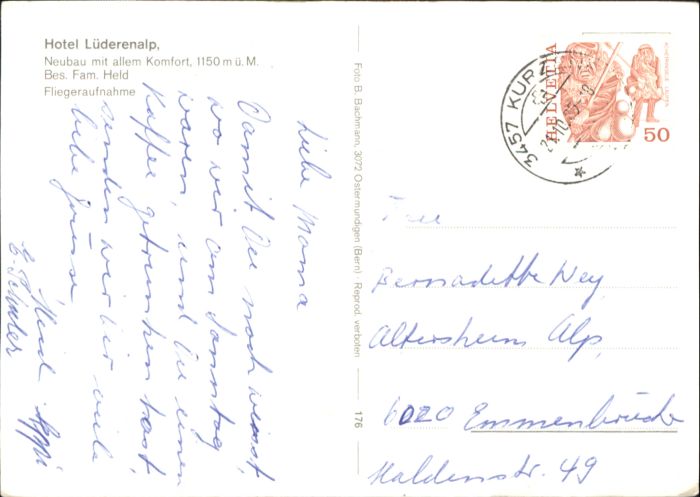 Hotel Lüderenalp,
Neubau mit allem Komfort, 1150 m ü. M.
Bes. Fam. Held
Fliegeraufnahme
Liebe Mama
Damit Du noch weisst,
wo wir am Sonntag
waren, und Du einen
Kaffee getrunken hast
senden wir dir viele
liebe Grüsse
Foto B. Bachmann, 3072 Ostermundigen (Bern) · Reprod. verboten
176
3457 KURZ
HELVETIA
50
Frau
Bernadette Wey,
Altersheim Alp,
6020 Emmenbrücke
Haldenstr. 49